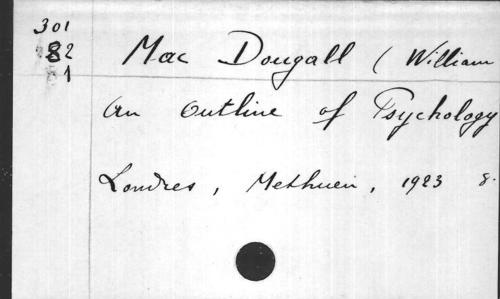 301
82
1
Mac Dougall (William
An Outline of Psychology
Londres, Methuen, 1923 8.